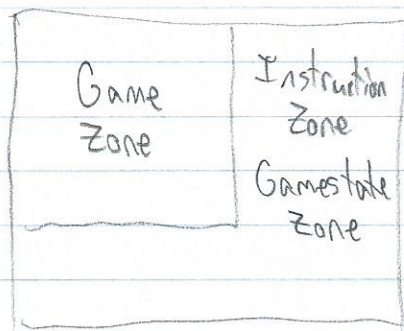 Game
Zone
Instruction
Zone
Gamestate
Zone